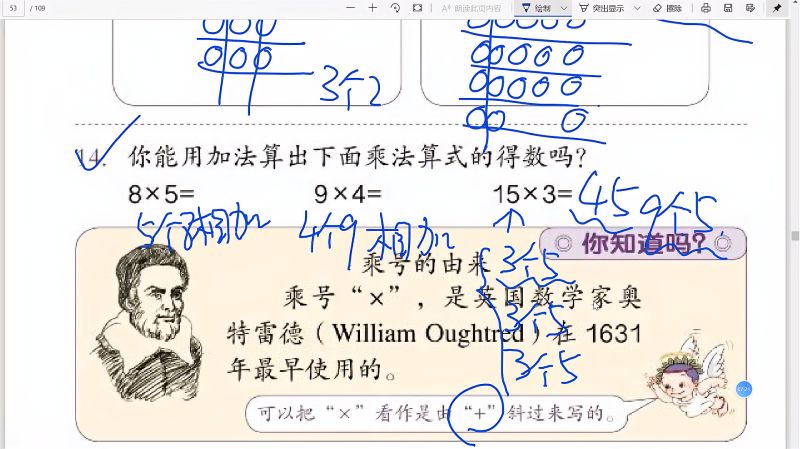 53 / 109 朗读此页内容 绘制 突出显示 擦除
3个2
14. 你能用加法算出下面乘法算式的得数吗?
8×5= 9×4= 15×3=45 9个5
5个8相加 4个9相加
你知道吗?
乘号的由来 3个5
乘号“×”，是英国数学家奥
3个5
特雷德（William Oughtred）在 1631
3个5
年最早使用的。
可以把“×”看作是由“+”斜过来写的。